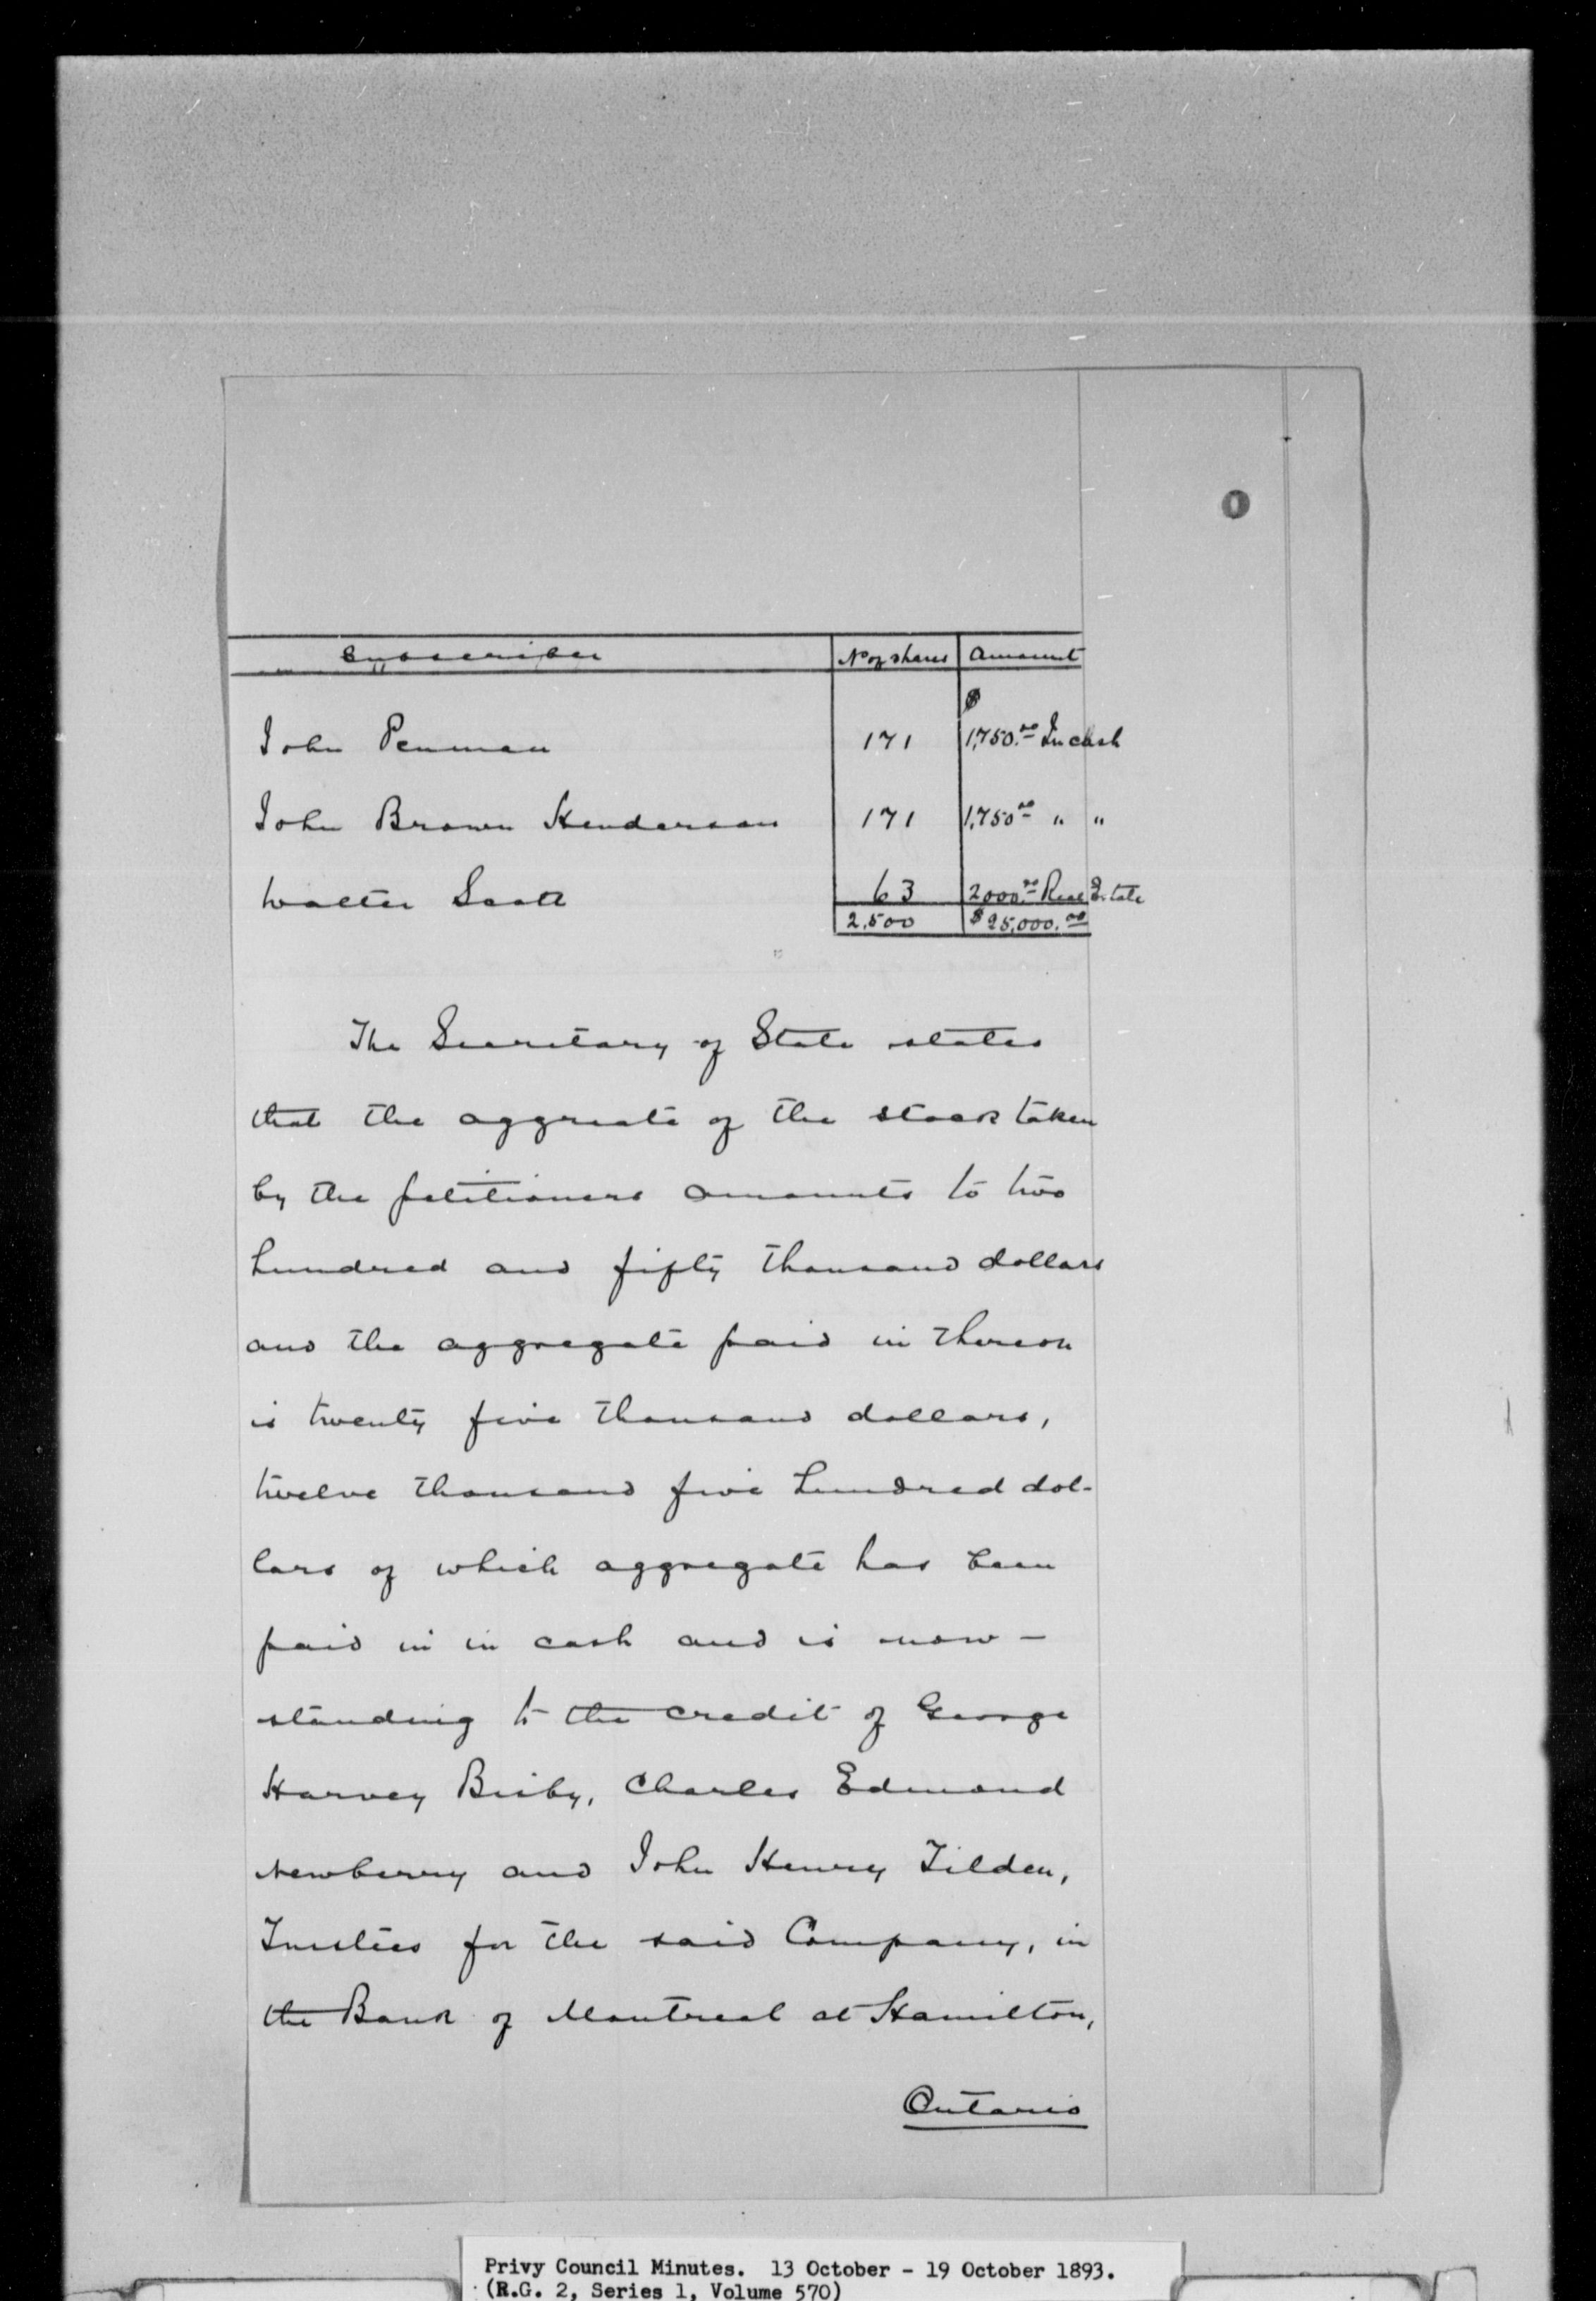 Subscriber No of shares Amount
$
John Penman 171 1,750.00 In cash
John Brown Henderson 171 1,750.00 " "
Walter Scott 63 2000.00 Real Estate
2,500 $25,000.00
The Secretary of State states
that the aggreate of the stock taken
by the petitioners amounts to two
hundred and fifty thousand dollars
and the aggregate paid in thereon
is twenty five thousand dollars,
twelve thousand five hundred dol-
lars of which aggregate has been
paid in in cash and is now –
standing to the credit of George
Harvey Bisby, Charles Edmond
Newberry and John Henry Tilden,
Trustees for the said Company, in
the Bank of Montreal at Hamilton,
Ontario
Privy Council Minutes. 13 October - 19 October 1893.
(R.G. 2, Series 1, Volume 570)